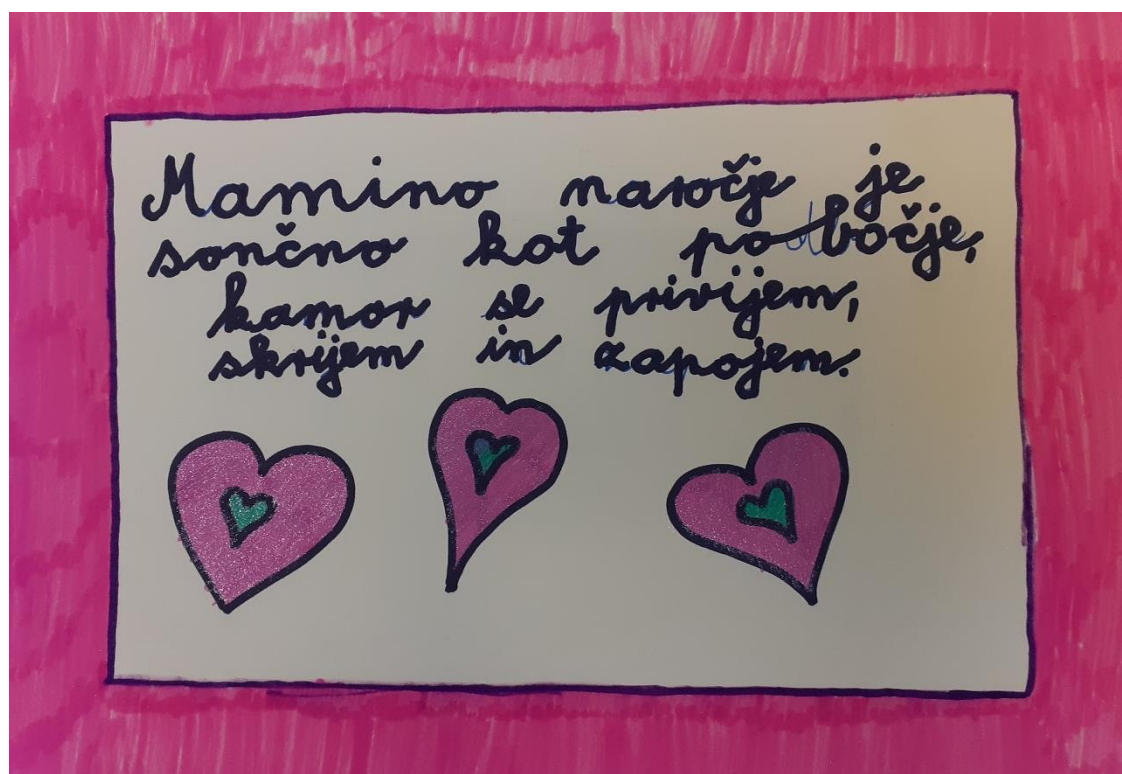 Mamino naročje je
sončno kot pobočje,
kamor se privijem,
skrijem in zapojem.